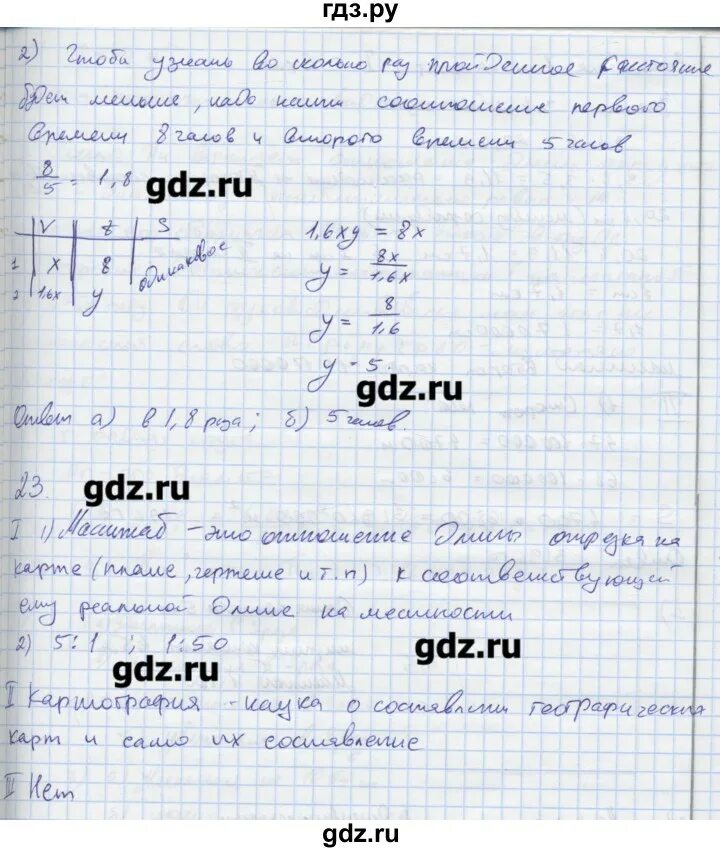 гдз.ру
2) Чтобы узнать во сколько раз пройденное расстояние
будет меньше, надо найти соотношение первого
времени 8 часов и второго времени 5 часов
8/5 = 1,8
gdz.ru
V t S
1 x 8 одинаковое
2 1,6x y
1,6xy = 8x
y = 8x/1,6x
y = 8/1,6
y = 5.
gdz.ru
Ответ а) в 1,8 раза; б) 5 часов.
23.
gdz.ru
I 1) Масштаб - это отношение длины отрезка на
карте (плане, чертеше и т.п) к соответствующей
ему реальной длине на местности
2) 5:1 ; 1:50
gdz.ru
gdz.ru
II Картография - наука о составлении географических
карт и само их составление
II Нет
gdz.ru